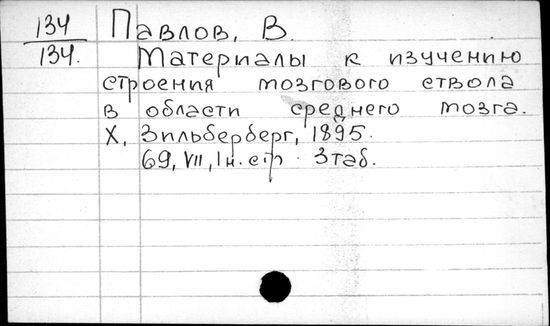 134 Павлов, В.
134. Материалы к изучению
строения мозгового ствола
в области среднего мозга.
Х, Зильберберг, 1895.
69, VII, 1 н. стр. 3 таб.